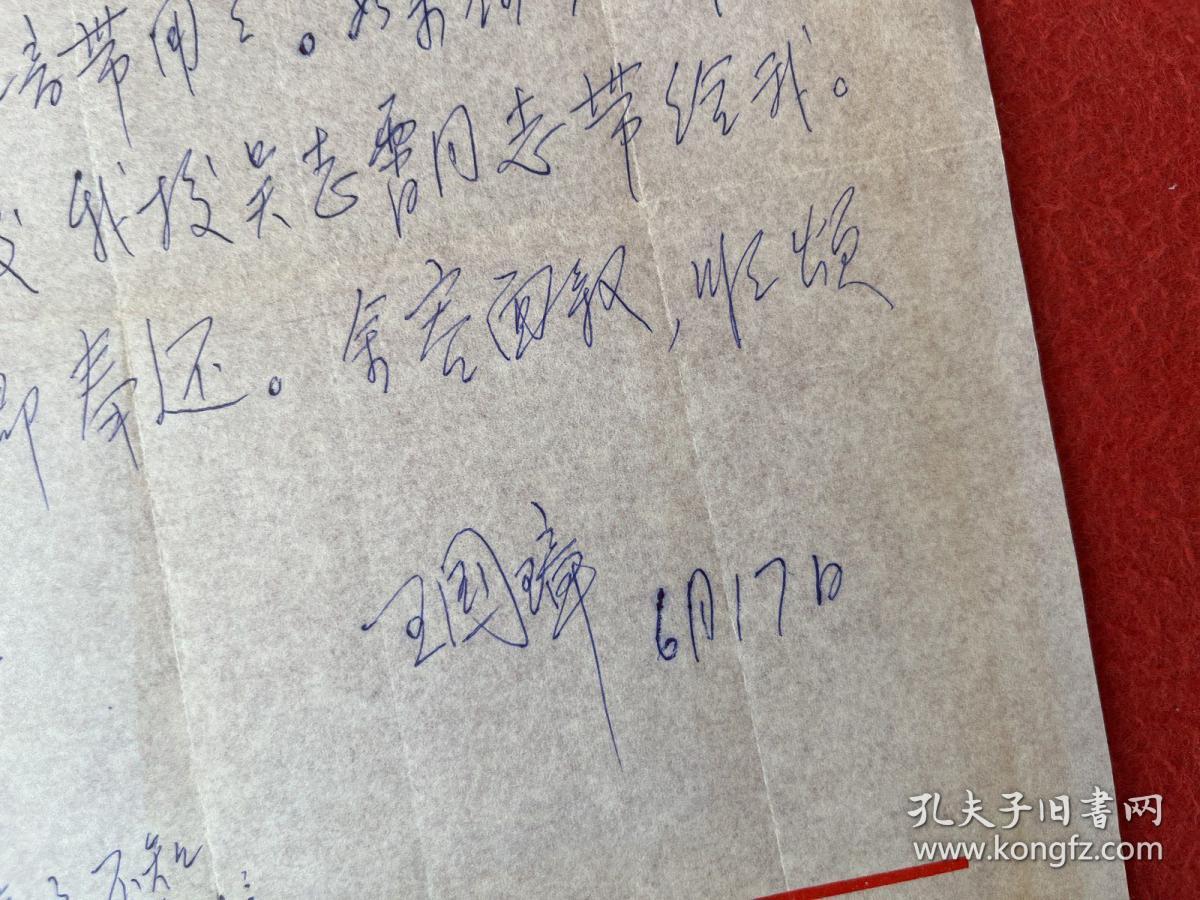 音带用之。如果
我校吴志霄同志带给我。
即奉还。余言面叙,顺颂
王国璋 6月17日
不知
孔夫子旧書网
www.kongfz.com